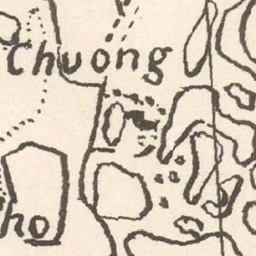 Chuong
ho